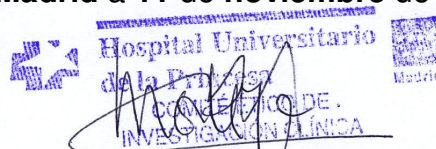 Madrid a 11 de noviembre de
Hospital Universitario
de la Princesa
Madrid
COMITÉ ÉTICO DE
INVESTIGACIÓN CLÍNICA